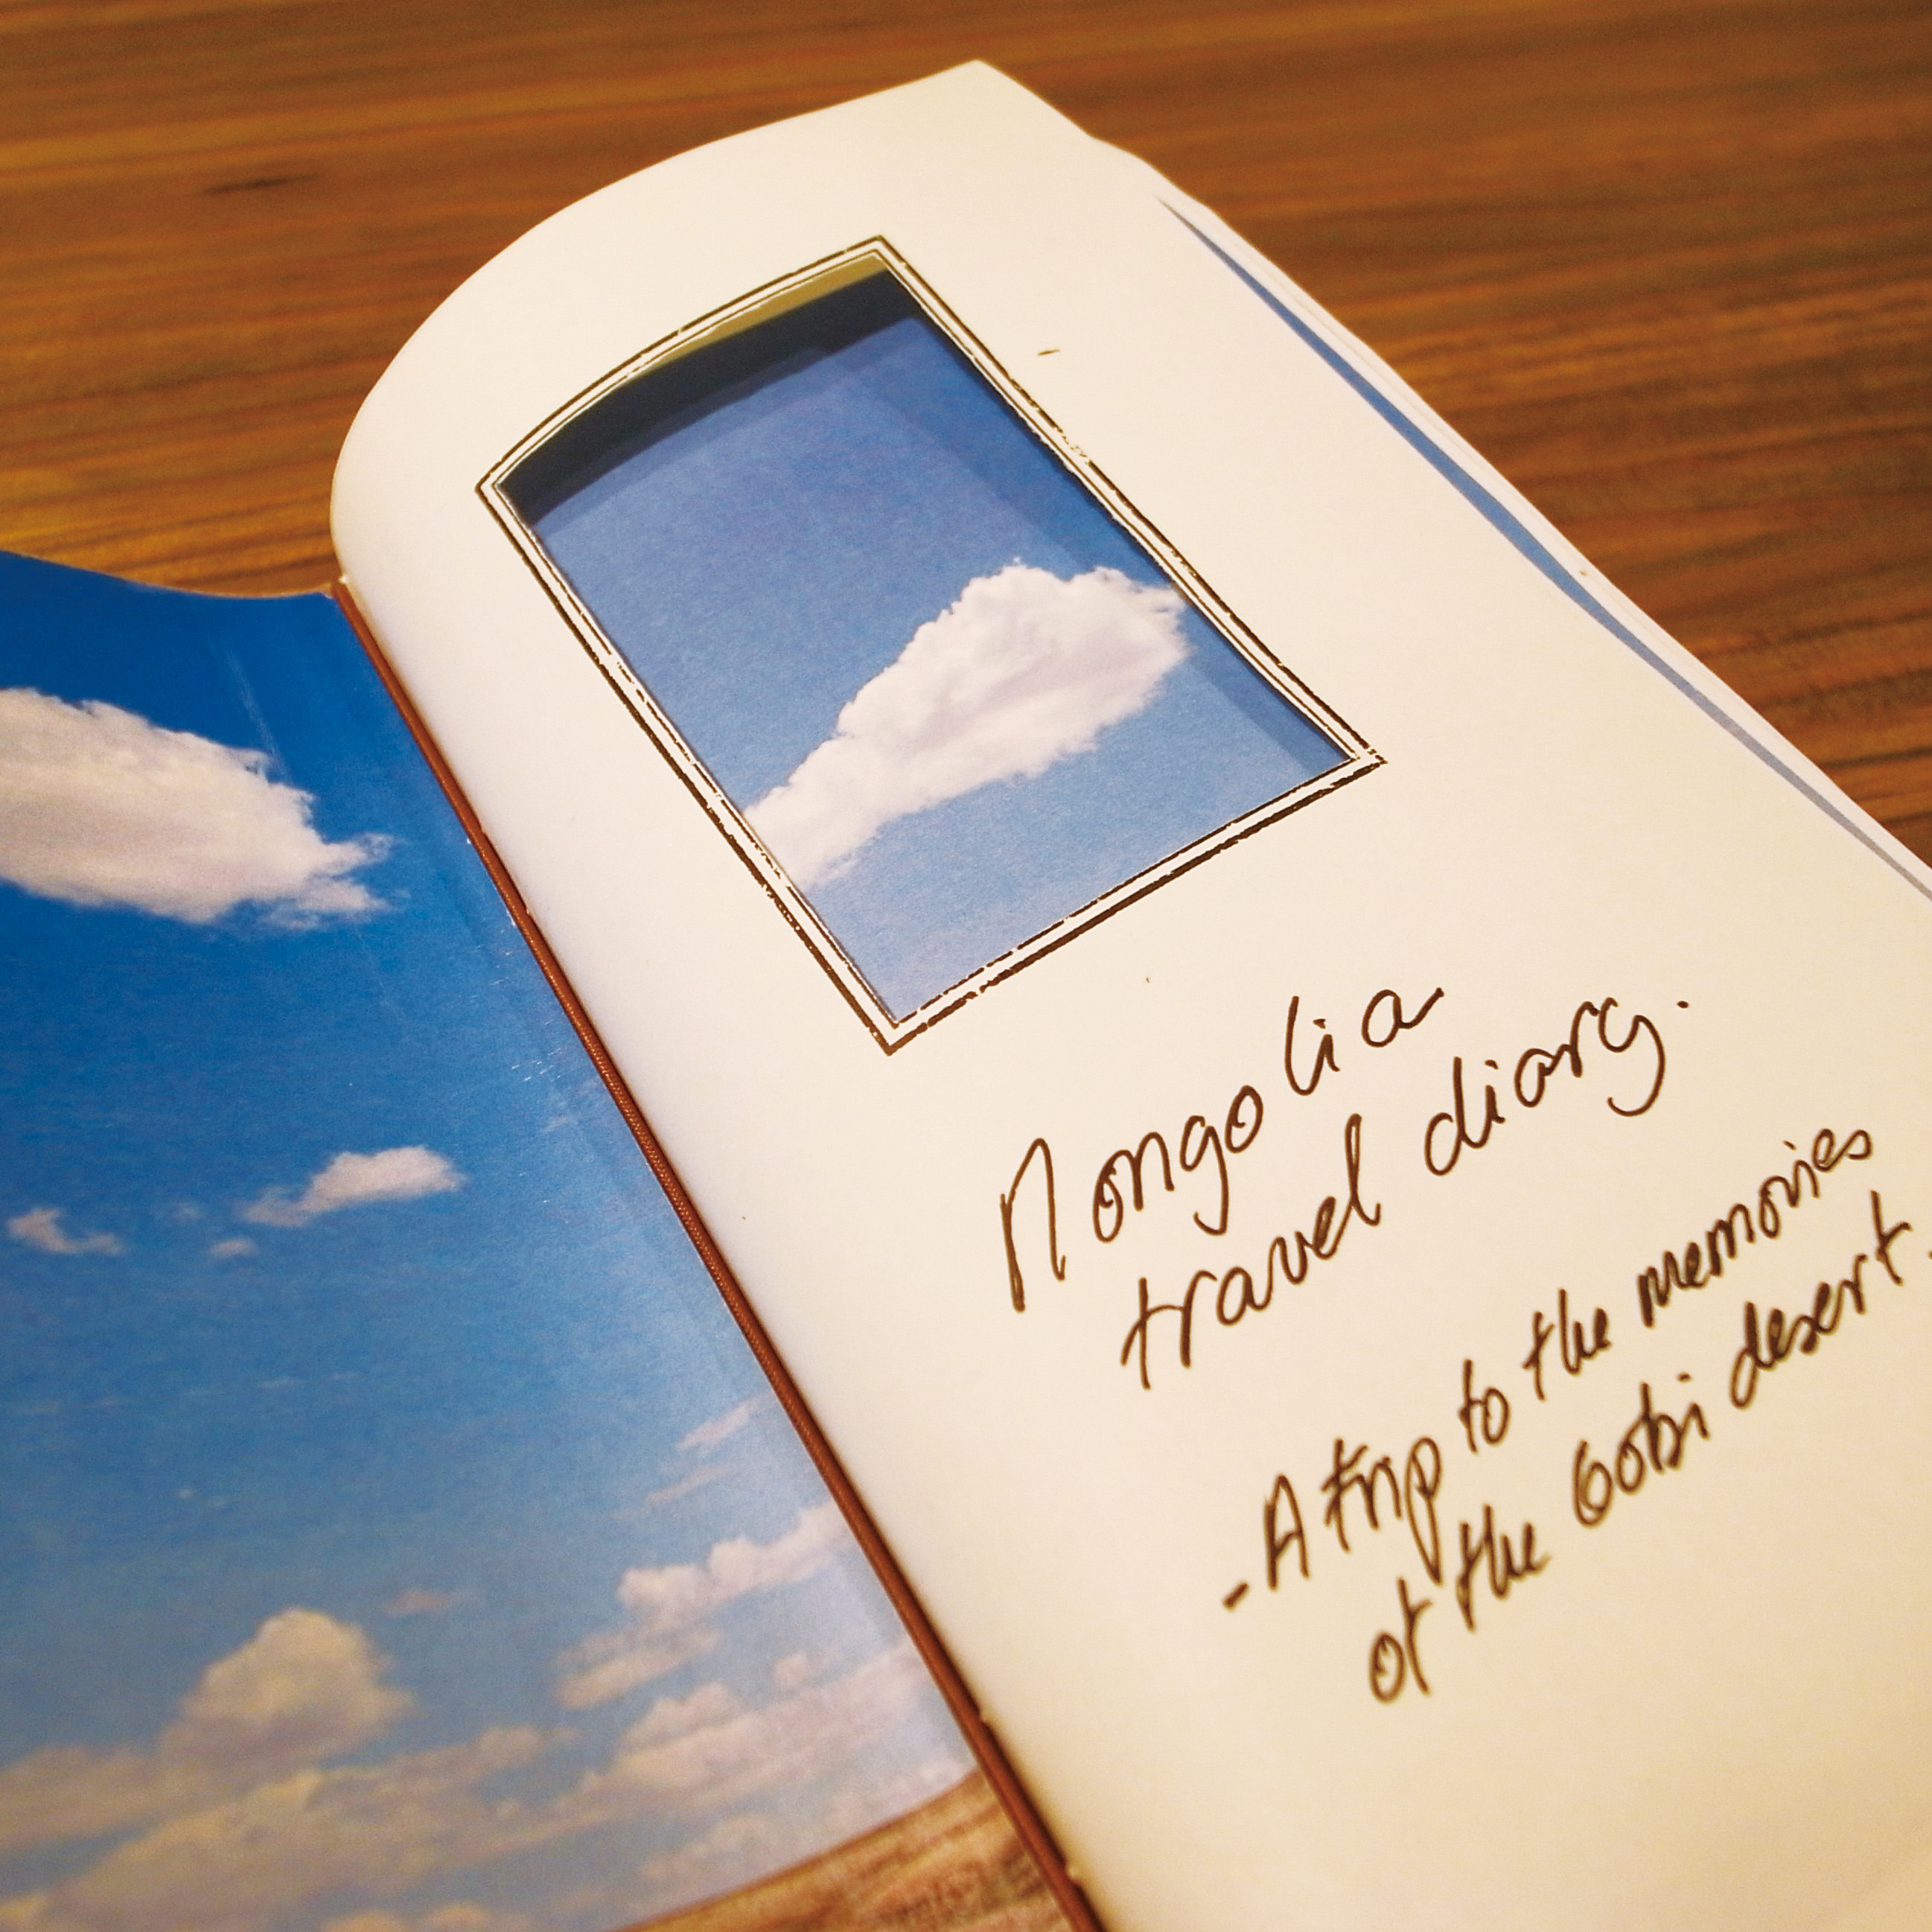 Mongolia
travel diary.
- A trip to the memories
of the Gobi desert.